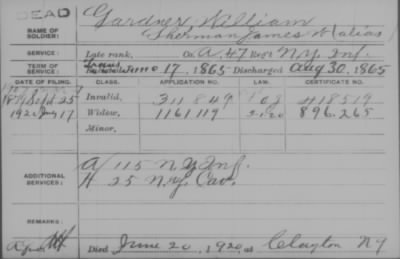 DEAD
NAME OF SOLDIER: Gardner, William
Sherman, James W (alias)
SERVICE: Late rank, Co. A, 47 Reg't N.Y. Inf.
TERM OF SERVICE: June 17, 1865 Discharged Aug 30, 1865
DATE OF FILING. CLASS. APPLICATION NO. LAW. CERTIFICATE NO.
1879 Sept 25 Invalid, 311849 418519
1920 July 17 Widow, 1161119 896.265
Minor,
ADDITIONAL SERVICES: A/115 N.Y. Inf.
H 25 N.Y. Cav.
REMARKS:
Died June 20, 1920, at Clayton NY